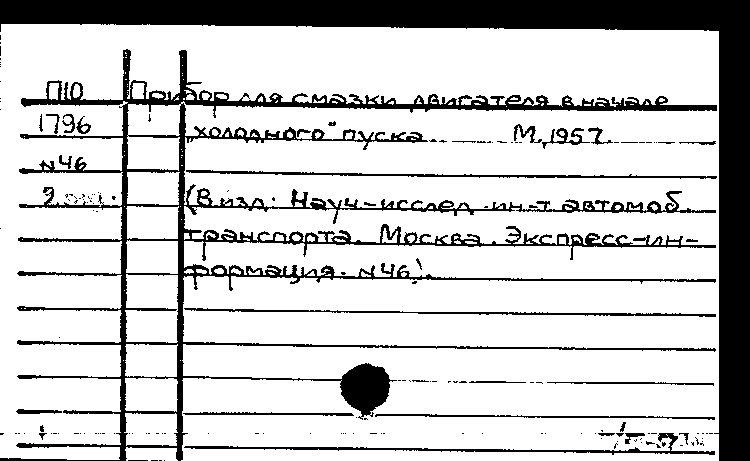 П10 Прибор для смазки двигателя в начале
1796 „холодного" пуска. М., 1957.
N46
(В изд: Науч-исслед. ин-т автомоб.
транспорта. Москва. Экспресс-ин-
формация. N46).